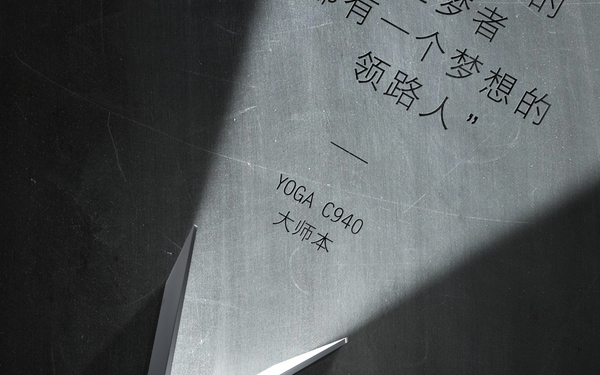 的
梦者
有一个梦想的
领路人”
—
YOGA C940
大师本